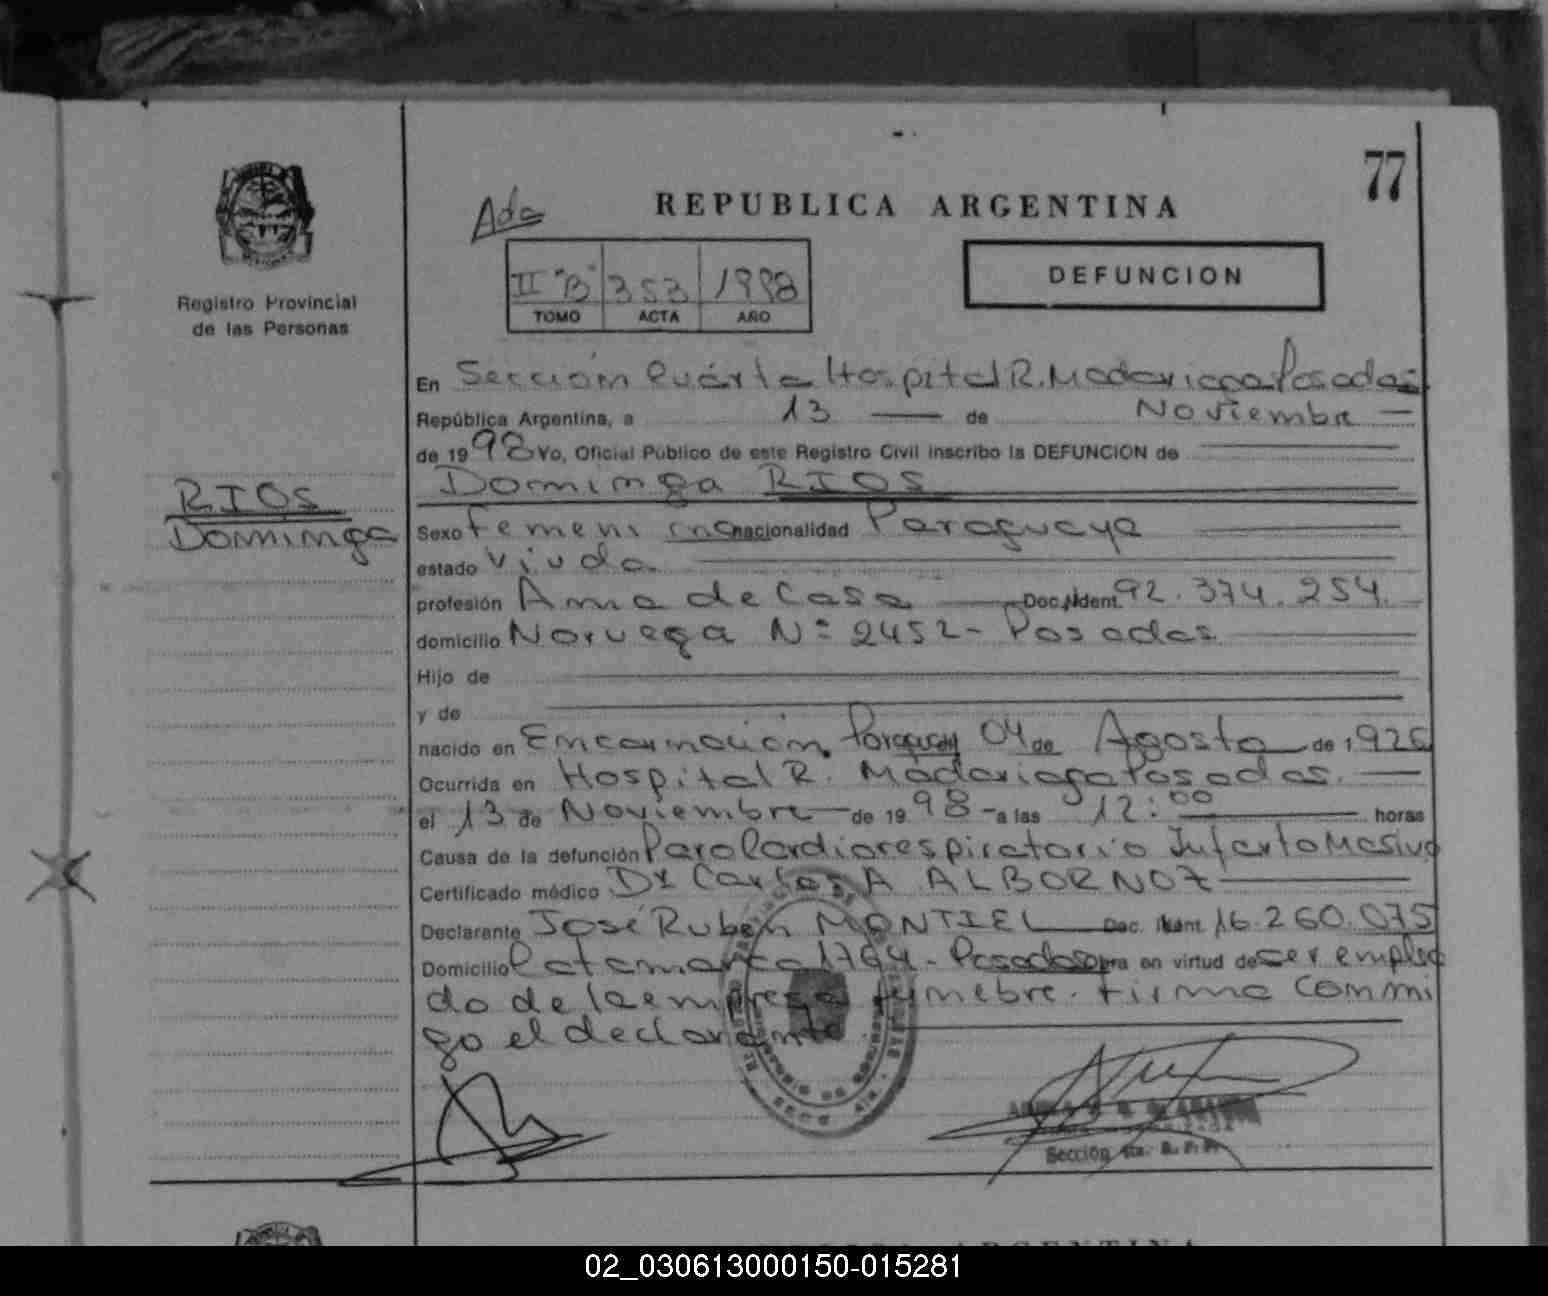 77
Ada
REPUBLICA ARGENTINA
II "B" 353 1998
TOMO ACTA AÑO
DEFUNCION
Registro Provincial
de las Personas
RIOS
Dominga
En Sección Cuarta Hospital R. Madariaga Posadas
República Argentina, a 13 de Noviembre
de 1998 Yo, Oficial Público de este Registro Civil inscribo la DEFUNCION de
Dominga RIOS
Sexo femenino nacionalidad Paraguaya
estado Viuda
profesión Ama de Casa Doc. Ident. 92.374.254.
domicilio Noruega Nº 2452 - Posadas
Hijo de
y de
nacido en Encarnación Paraguay 04 de Agosto de 1.926
Ocurrida en Hospital R. Madariaga Posadas.
el 13 de Noviembre de 1998 a las 12:00 horas
Causa de la defunción Paro Cardiorespiratorio Infarto Masivo
Certificado médico Dr Carlos A ALBORNOZ
Declarante José Ruben MONTIEL Doc. Ident. 16.260.075
Domicilio Catamarca 1764 - Posadas Obra en virtud de ser emplea
do de la empresa funebre. Firma conmi
go el declarante.
Sección 4ta. R. P. P.
REPUBLICA ARGENTINA
02_030613000150-015281